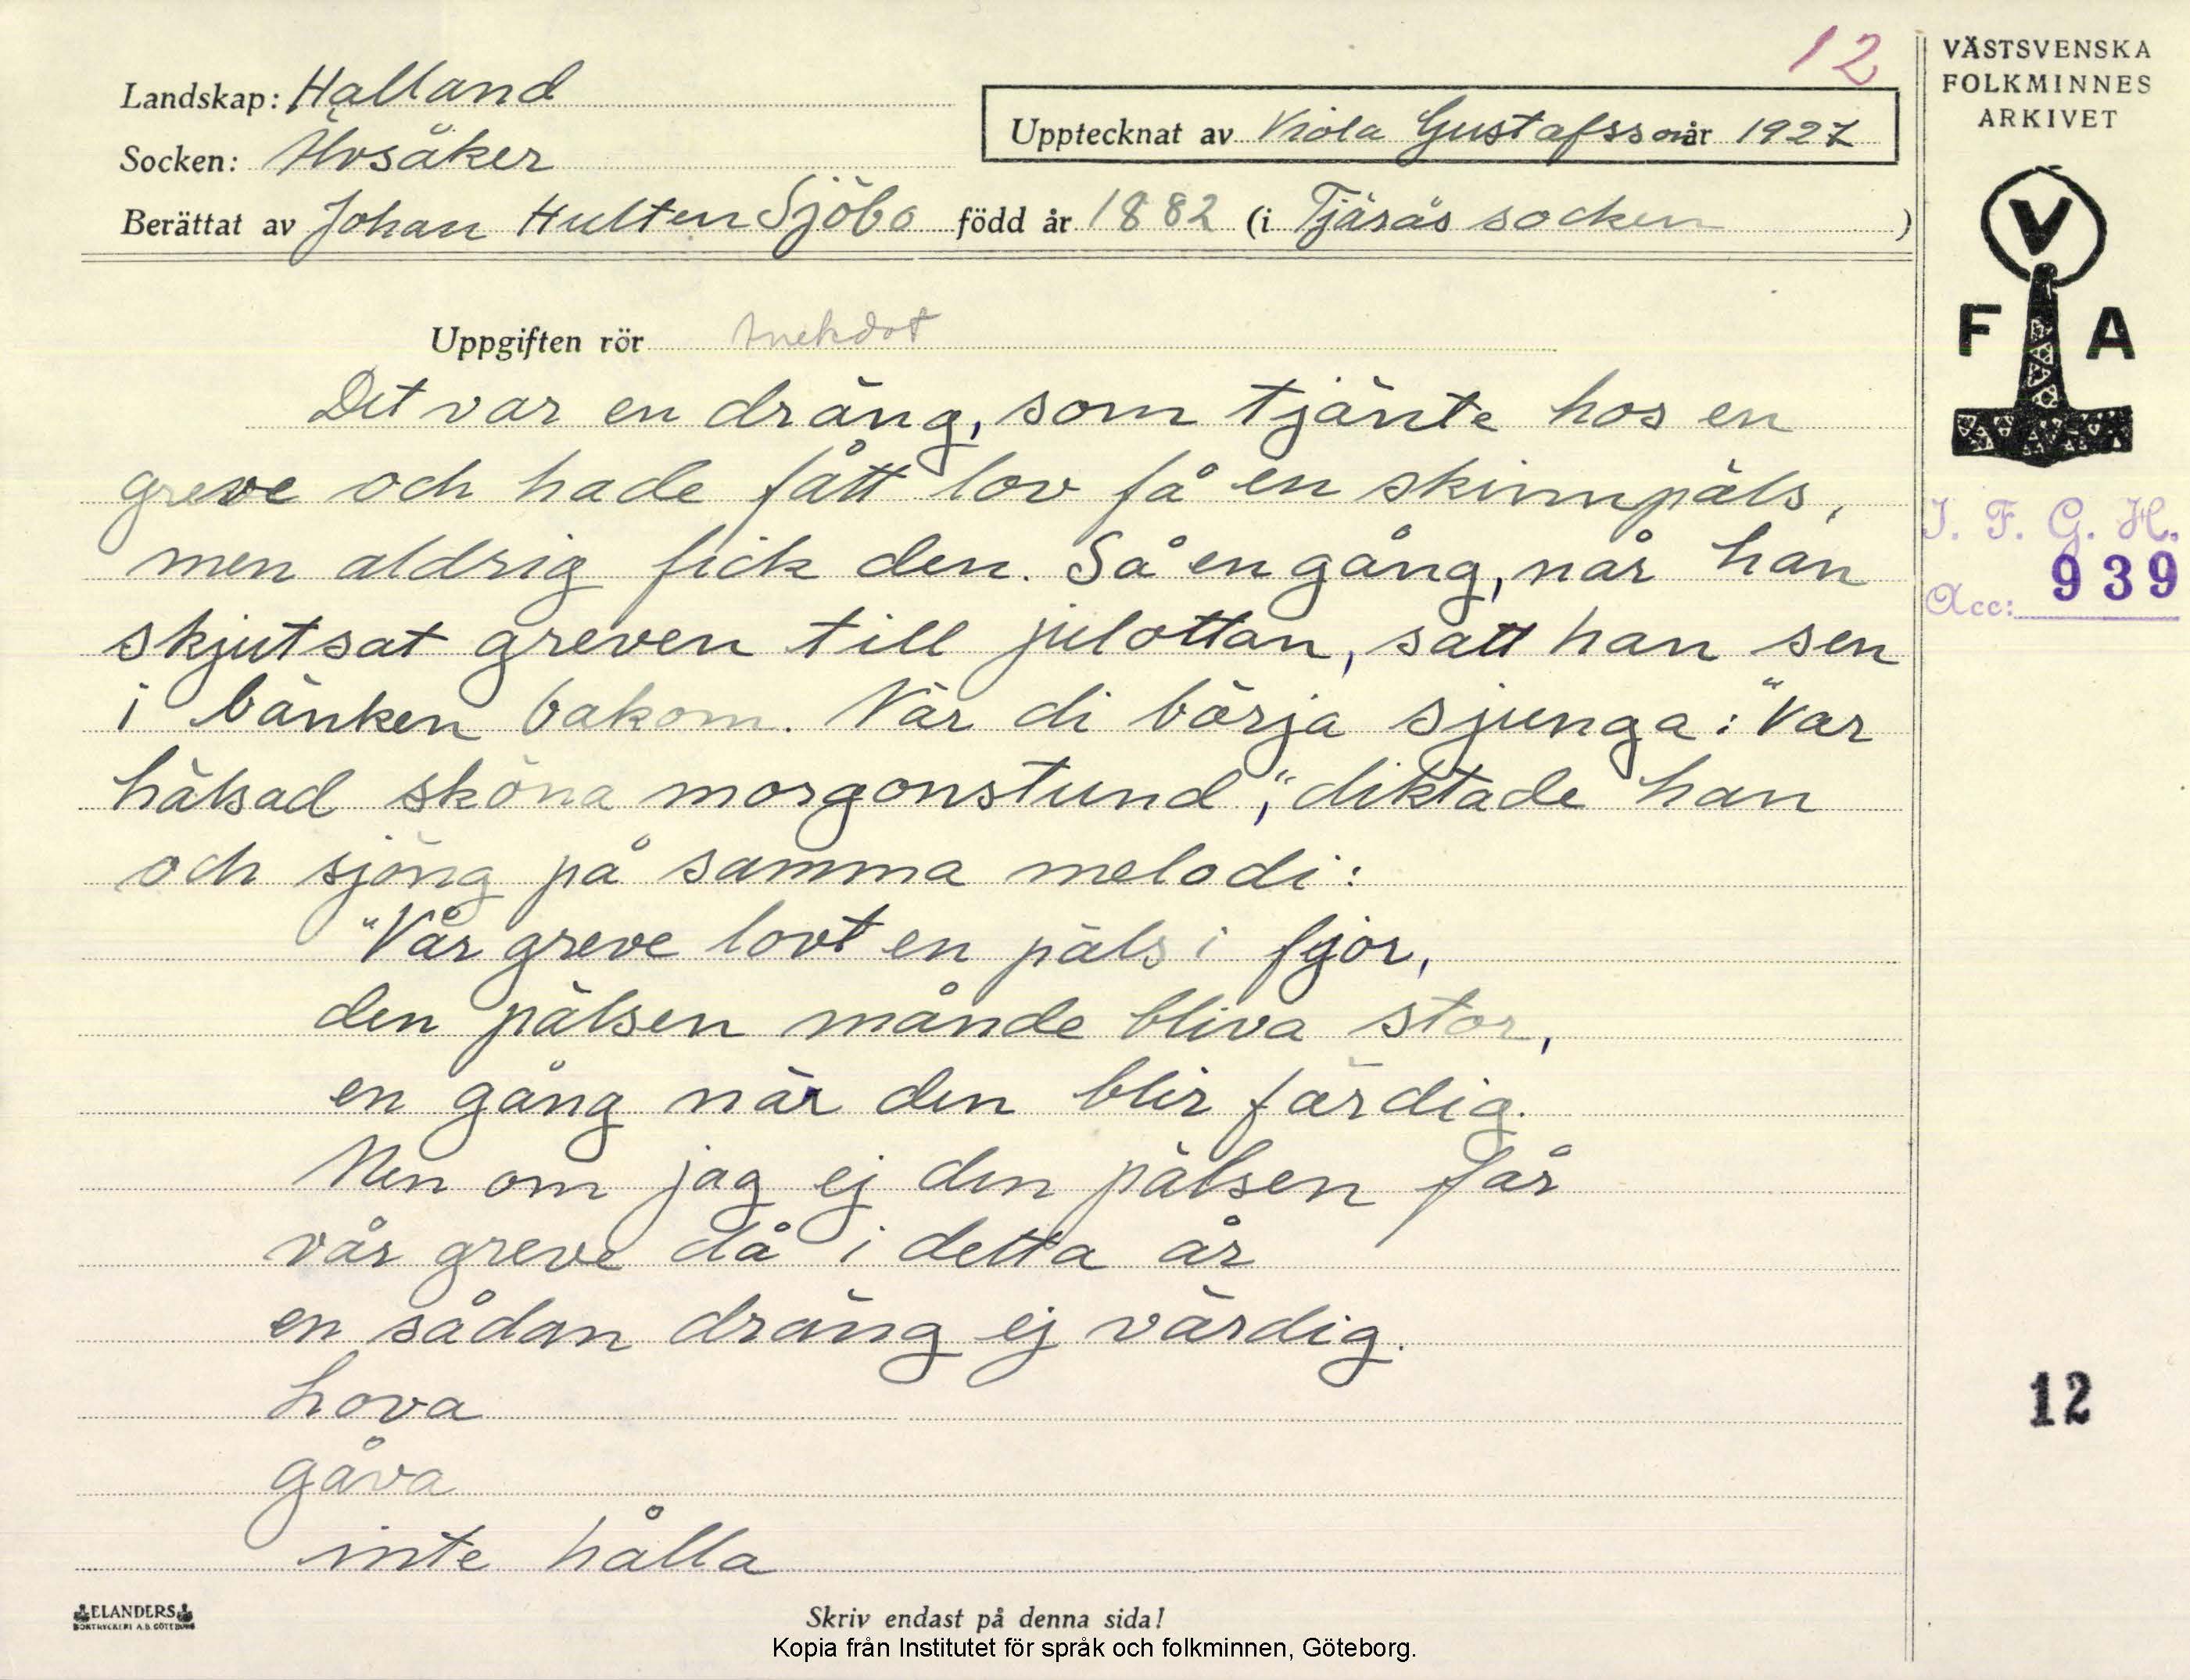 12
Landskap: Halland
Socken: Älvsåker
Upptecknat av Viola Gustafsson år 1927
Berättat av Johan Hulten Sjöbo född år 1882 (i Fjärås socken )
VÄSTSVENSKA
FOLKMINNES
ARKIVET
V
F A
I. F. G. H.
Acc: 939
Uppgiften rör Anekdot
Det var en dräng, som tjänte hos en
greve och hade fått lov få en skinnpäls,
men aldrig fick den. Så en gång, när han
skjutsat greven till julottan, satt han sen
i bänken bakom. När di börja sjunga: "Var
hälsad sköna morgonstund", diktade han
och sjöng på samma melodi:
"Vår greve lovt en päls i fjor,
den pälsen månde bliva stor,
en gång när den blir färdig.
Men om jag ej den pälsen får
vår greve då i detta år
en sådan dräng ej värdig.
hova
gåva
inte hålla
12
ELANDERS
BOKTRYCKERI A.B. GÖTEBORG
Skriv endast på denna sida!
Kopia från Institutet för språk och folkminnen, Göteborg.